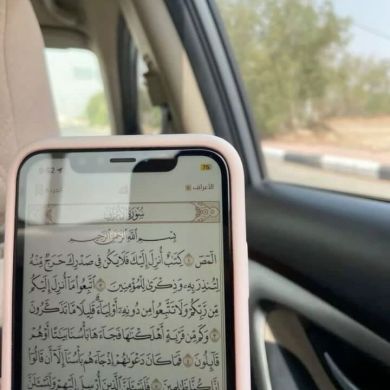 9:52
75
الأعراف
سُورَةُ الْأَعْرَافِ
بِسْمِ اللَّهِ الرَّحْمَٰنِ الرَّحِيمِ
الٓمٓصٓ ۝١ كِتَٰبٌ أُنزِلَ إِلَيْكَ فَلَا يَكُن فِى صَدْرِكَ حَرَجٌ مِّنْهُ
لِتُنذِرَ بِهِۦ وَذِكْرَىٰ لِلْمُؤْمِنِينَ ۝٢ ٱتَّبِعُوا۟ مَآ أُنزِلَ إِلَيْكُم
مِّن رَّبِّكُمْ وَلَا تَتَّبِعُوا۟ مِن دُونِهِۦٓ أَوْلِيَآءَ ۗ قَلِيلًا مَّا تَذَكَّرُونَ
۝٣ وَكَم مِّن قَرْيَةٍ أَهْلَكْنَٰهَا فَجَآءَهَا بَأْسُنَا بَيَٰتًا أَوْ هُمْ
قَآئِلُونَ ۝٤ فَمَا كَانَ دَعْوَىٰهُمْ إِذْ جَآءَهُم بَأْسُنَآ إِلَّآ أَن قَالُوٓا۟
إِنَّا كُنَّا ظَٰلِمِينَ ۝٥ فَلَنَسْـَٔلَنَّ ٱلَّذِينَ أُرْسِلَ إِلَيْهِمْ وَلَنَسْـَٔلَنَّ